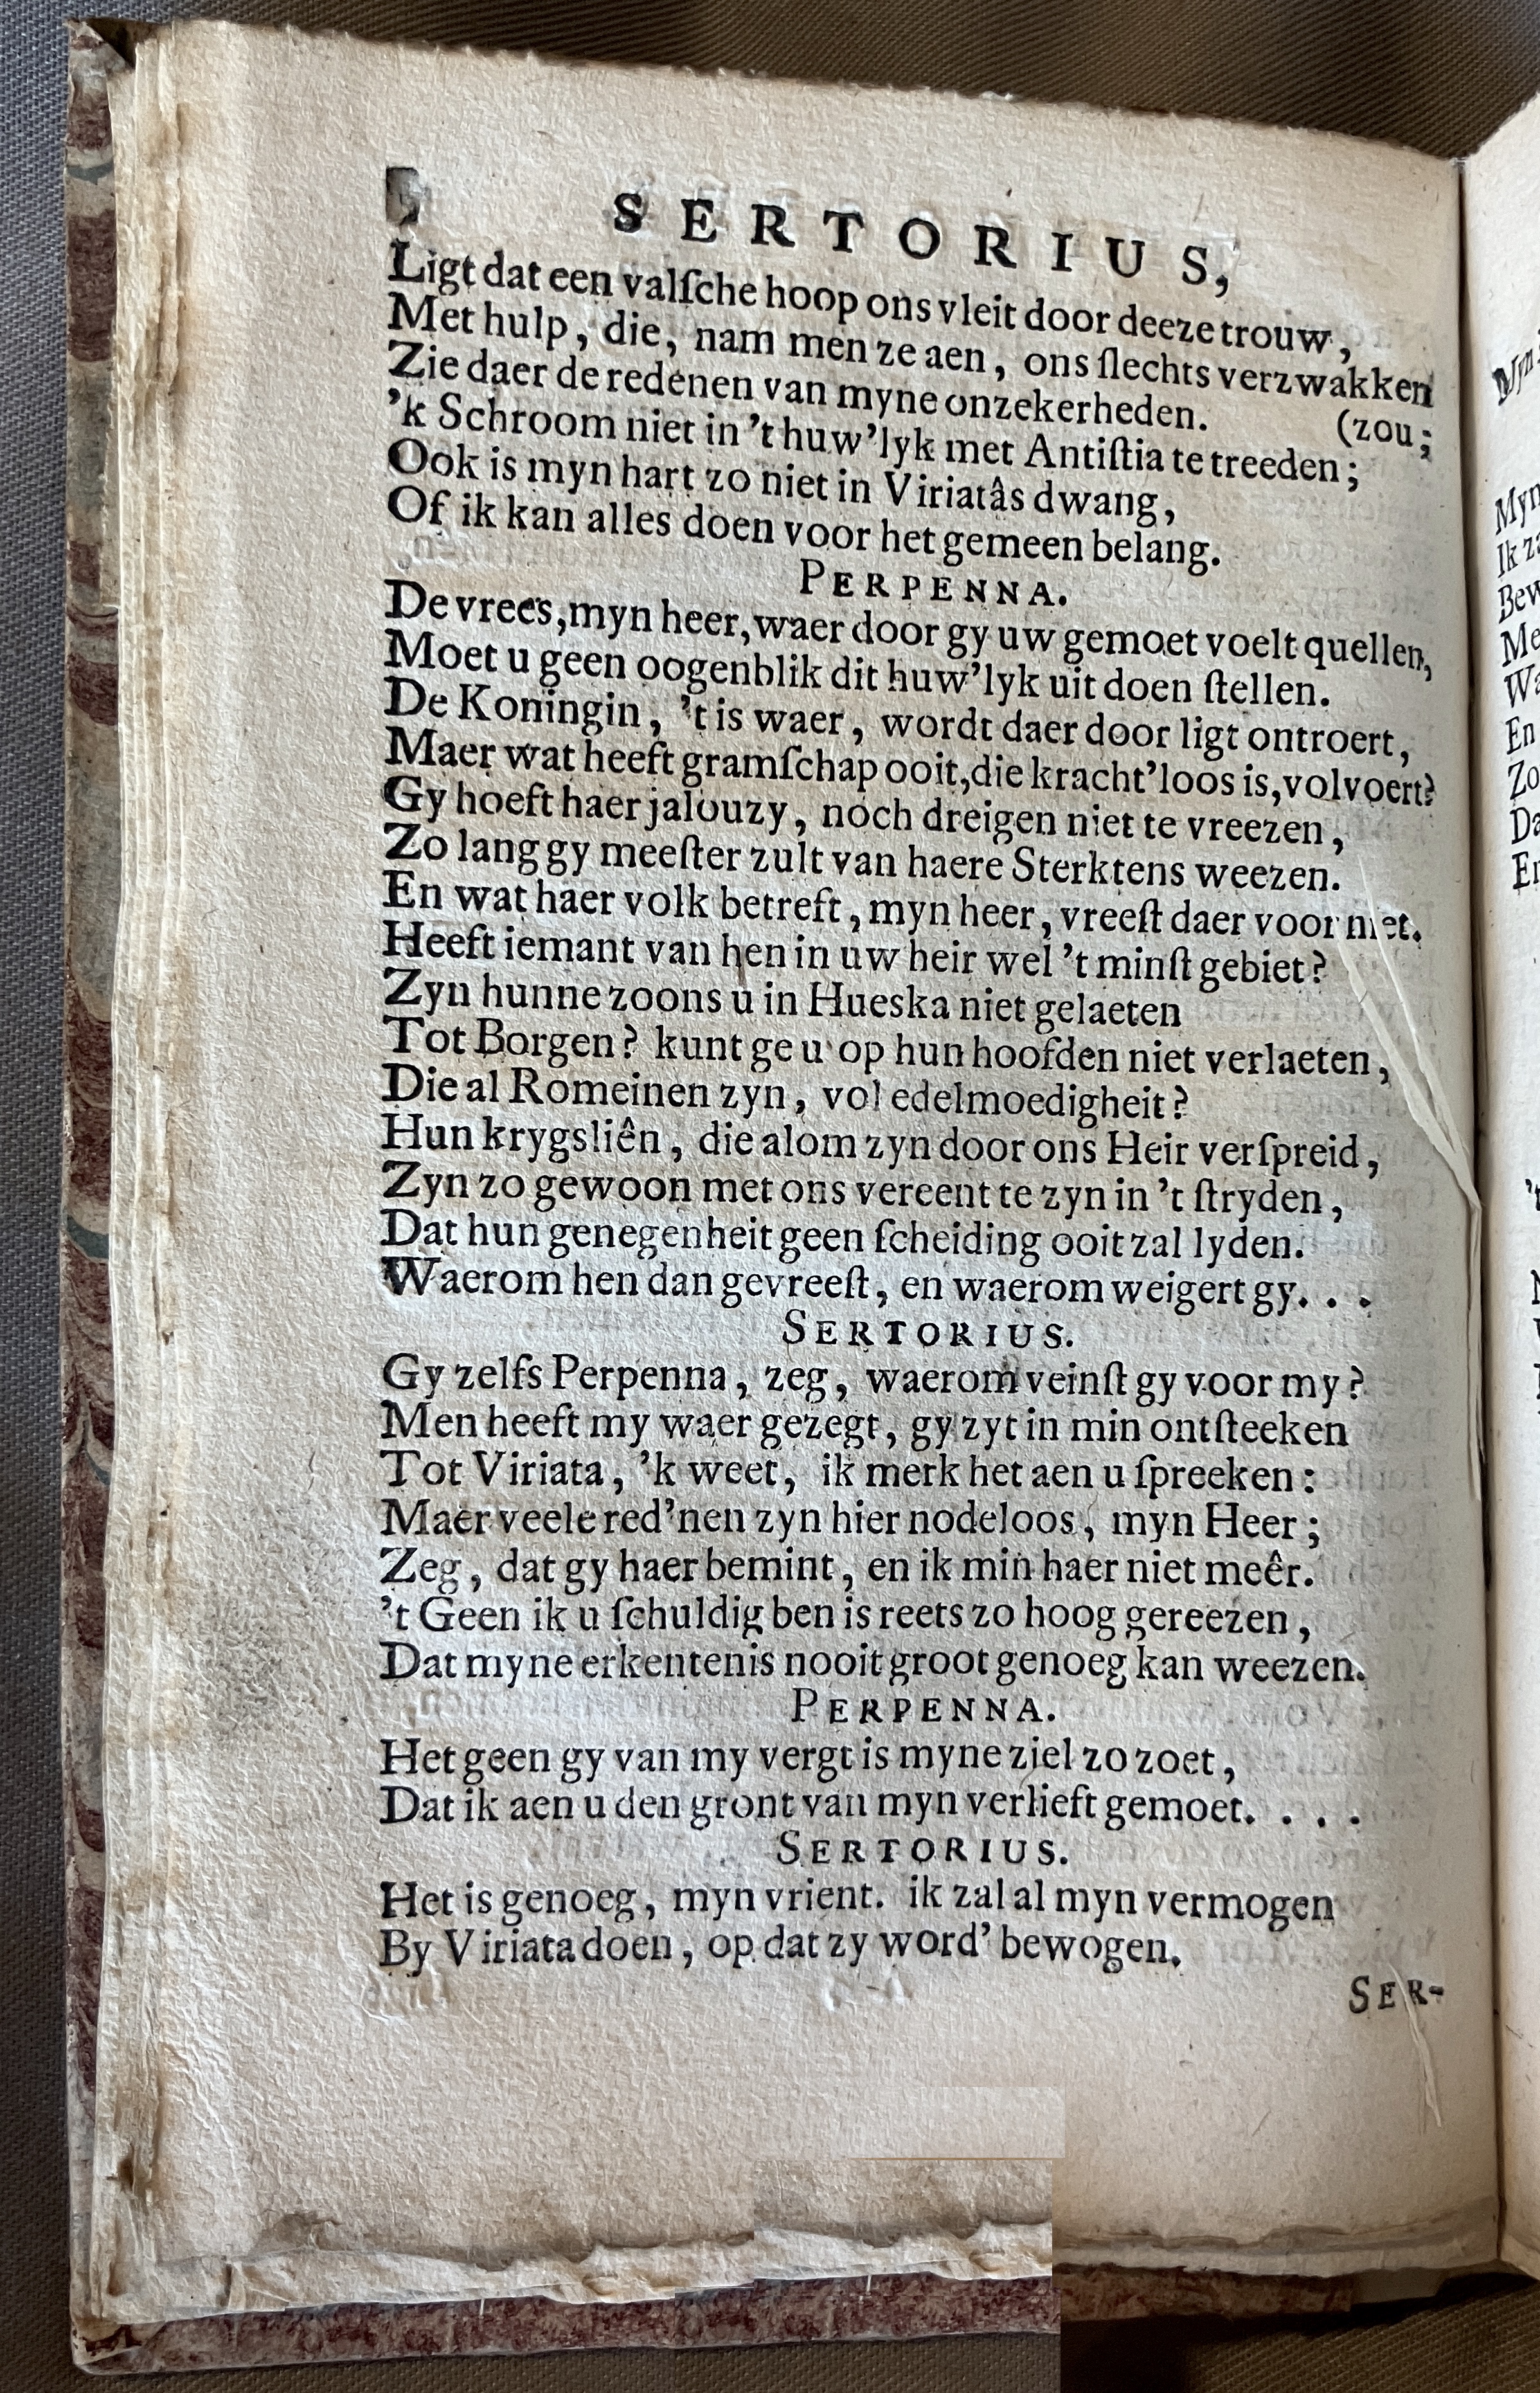 SERTORIUS,
Ligt dat een valſche hoop ons vleit door deeze trouw,
Met hulp, die, nam men ze aen, ons ſlechts verzwakken
(zou;
Zie daer de redenen van myne onzekerheden.
'k Schroom niet in 't huw'lyk met Antiſtia te treeden;
Ook is myn hart zo niet in Viriatâs dwang,
Of ik kan alles doen voor het gemeen belang.
PERPENNA.
De vrees, myn heer, waer door gy uw gemoet voelt quellen,
Moet u geen oogenblik dit huw'lyk uit doen ſtellen.
De Koningin, 't is waer, wordt daer door ligt ontroert,
Maer wat heeft gramſchap ooit, die kracht'loos is, volvoert?
Gy hoeft haer jalouzy, noch dreigen niet te vreezen,
Zo lang gy meeſter zult van haere Sterktens weezen.
En wat haer volk betreft, myn heer, vreeſt daer voor niet.
Heeft iemant van hen in uw heir wel 't minſt gebiet?
Zyn hunne zoons u in Hueska niet gelaeten
Tot Borgen? kunt ge u op hun hoofden niet verlaeten,
Die al Romeinen zyn, vol edelmoedigheit?
Hun krygsliên, die alom zyn door ons Heir verſpreid,
Zyn zo gewoon met ons vereent te zyn in 't ſtryden,
Dat hun genegenheit geen ſcheiding ooit zal lyden.
Waerom hen dan gevreeſt, en waerom weigert gy. . .
SERTORIUS.
Gy zelfs Perpenna, zeg, waerom veinſt gy voor my?
Men heeft my waer gezegt, gy zyt in min ontſteeken
Tot Viriata, 'k weet, ik merk het aen u ſpreeken:
Maer veele red'nen zyn hier nodeloos, myn Heer;
Zeg, dat gy haer bemint, en ik min haer niet meêr.
't Geen ik u ſchuldig ben is reets zo hoog gereezen,
Dat myne erkentenis nooit groot genoeg kan weezen.
PERPENNA.
Het geen gy van my vergt is myne ziel zo zoet,
Dat ik aen u den gront van myn verlieft gemoet. . . .
SERTORIUS.
Het is genoeg, myn vrient. ik zal al myn vermogen
By Viriata doen, op dat zy word' bewogen.
SER-
Myn
Ik
Bew
Me
En
Zo